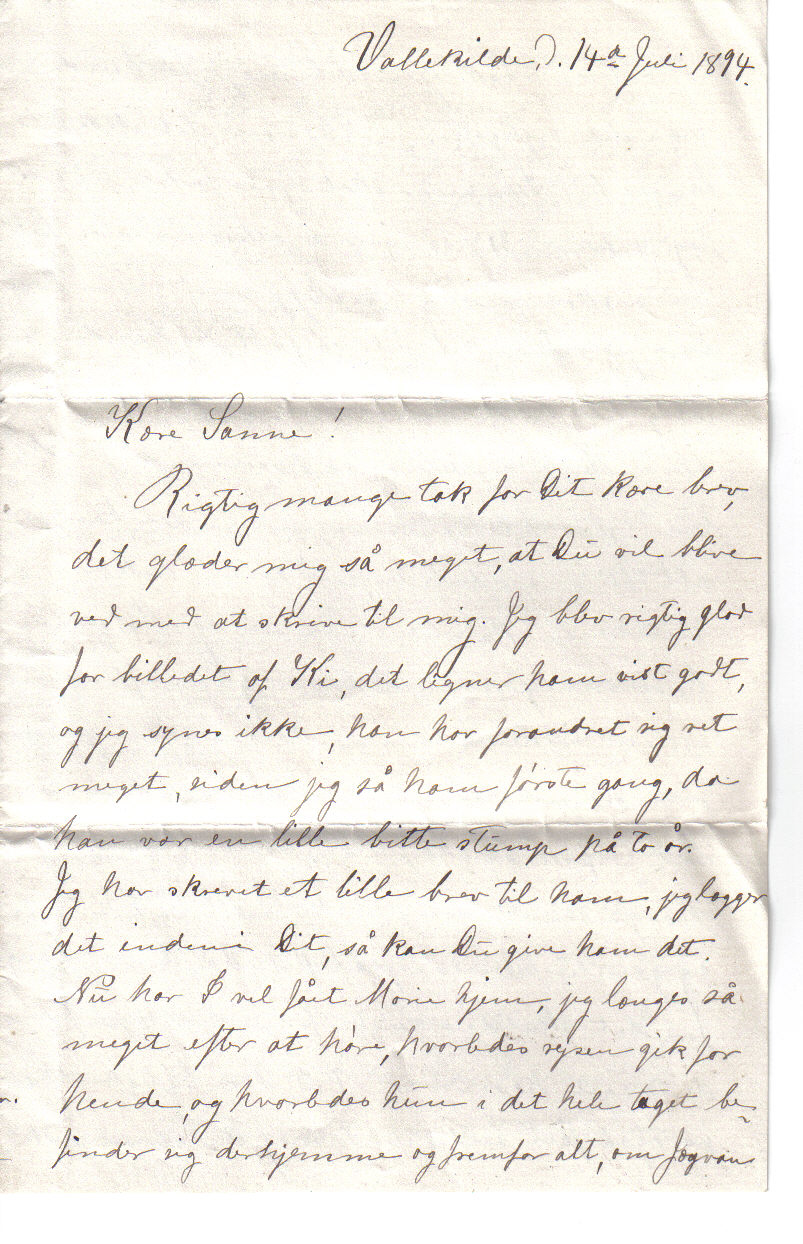 Vallekilde, d. 14de Juli 1894.
Kære Sanne!
Rigtig mange tak for Dit kære brev,
det glæder mig så meget, at Du vil blive
ved med at skrive til mig. Jeg blev rigtig glad
for billedet af Ki, det ligner ham vist godt,
og jeg synes ikke, han har forandret sig ret
meget, siden jeg så ham første gang, da
han var en lille bitte stump på to år.
Jeg har skrevet et lille brev til ham, jeg lægger
det inden i Dit, så kan Du give ham det.
Nu har I vel fået Marie hjem, jeg længes så
meget efter at høre, hvorledes rejsen gik for
hende, og hvorledes hun i det hele taget be-
finder sig derhjemme og fremfor alt, om Jógvan